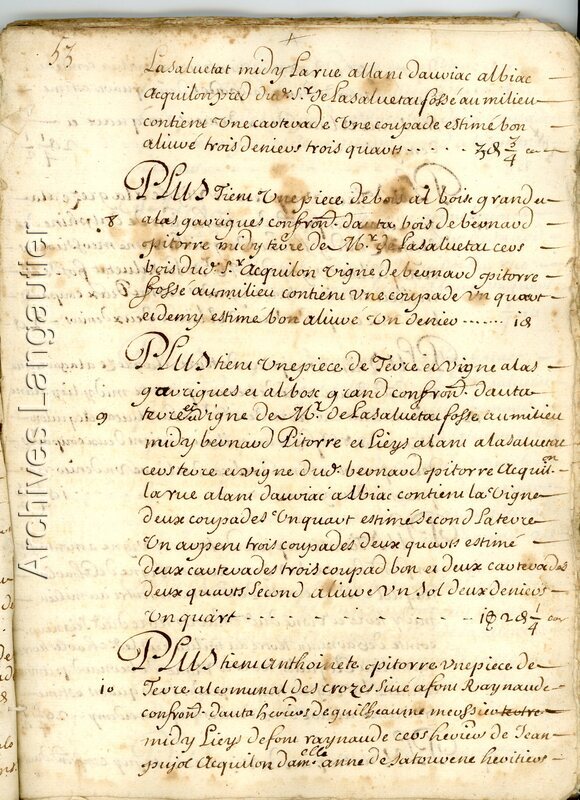 53
Lasaluetat midy La rue allant dauriac albiac
acquilon pred dud. Sr. de Lasaluetat fossé au milieu
contient Une carterade Une coupade estimé bon
aliuré trois deniers trois quarts ...... 3d 3/4
PLUS Tient Une piece de bois al bois grand et
8 a las garrigues confront. dauta bois de bernard
pitorre midy terre de Mr. de Lasaluetat cers
bois dud. Sr. Acquilon Vigne de bernard pitorre
fossé au milieu contient Une coupade Un quart
et demy estimé bon aliuré Un denier ...... 1d
PLUS tient Une piece de Terre et Vigne a las
garrigues et al bosc grand confront. dauta
9 terre et Vigne de Mr. de Lasaluetat fosse au milieu
midy bernard Pitorre et Lieys a lant a lasaluetat
cers terre et vigne dud. bernard pitorre Acquilon
la rue alant dauriac albiac contient la Vigne
deux coupades Un quart estimé second La terre
Un arpent trois coupades deux quarts estimé
deux carterades trois coupad bon et deux carterades
deux quarts second aliuré Un sol deux deniers
Un quart ...... 1s 2d 1/4
PLUS tient Anthoinete pitorre Une piece de
10 Terre al comunal des crozes siué a font Raynaude
confront. dauta heritiers de guilheaume
midy Lieys de font raynaude cers heritiers de Jean
pujol Acquilon dam.elle anne de heritiers
Archives Langautier